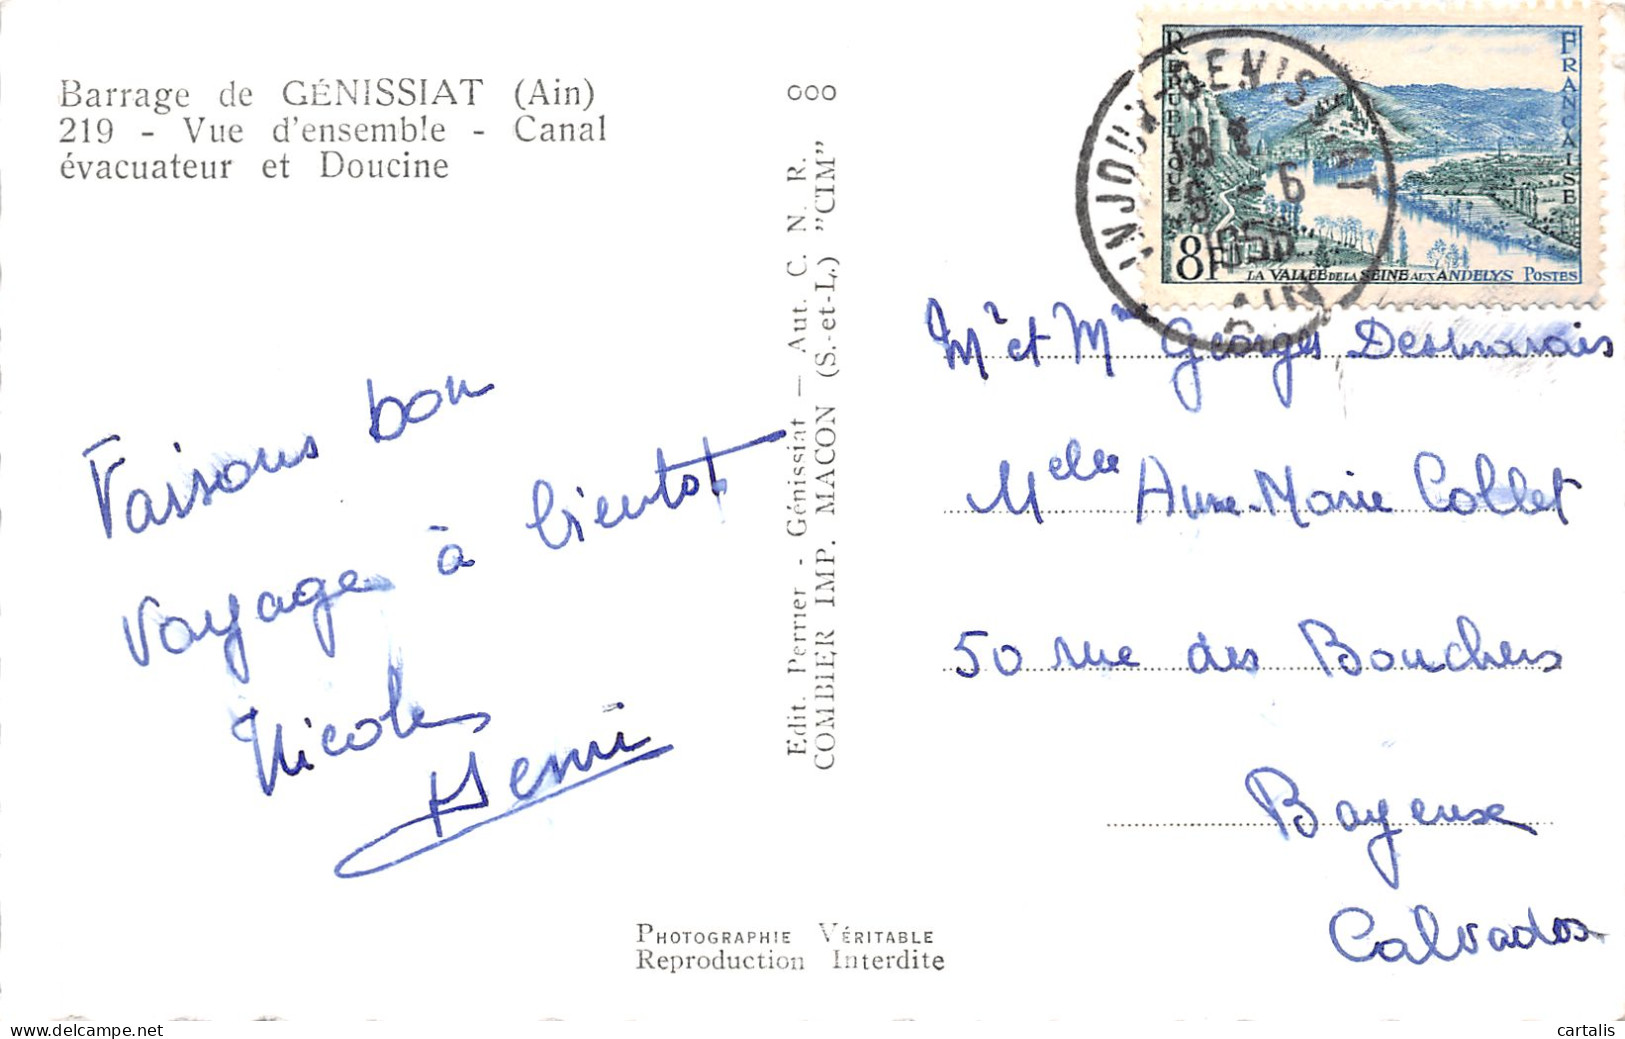 Barrage de GÉNISSIAT (Ain)
219 - Vue d'ensemble - Canal
évacuateur et Doucine
Faisons bon
voyage à bientot
Nicole
Henri
Edit. Perrier - Génissiat — Aut. C. N. R.
COMBIER IMP. MACON (S.-et-L.) "CIM"
PHOTOGRAPHIE VÉRITABLE
Reproduction Interdite
RÉPUBLIQUE
FRANÇAISE
8F
LA VALLÉE DE LA SEINE AUX ANDELYS POSTES
INJOUX-GENISSIAT
18 H
6 - 6
AIN
Mr et Mme Georges Desmarais
Melle Anne-Marie Collet
50 rue des Bouchers
Bayeux
Calvados
cartalis